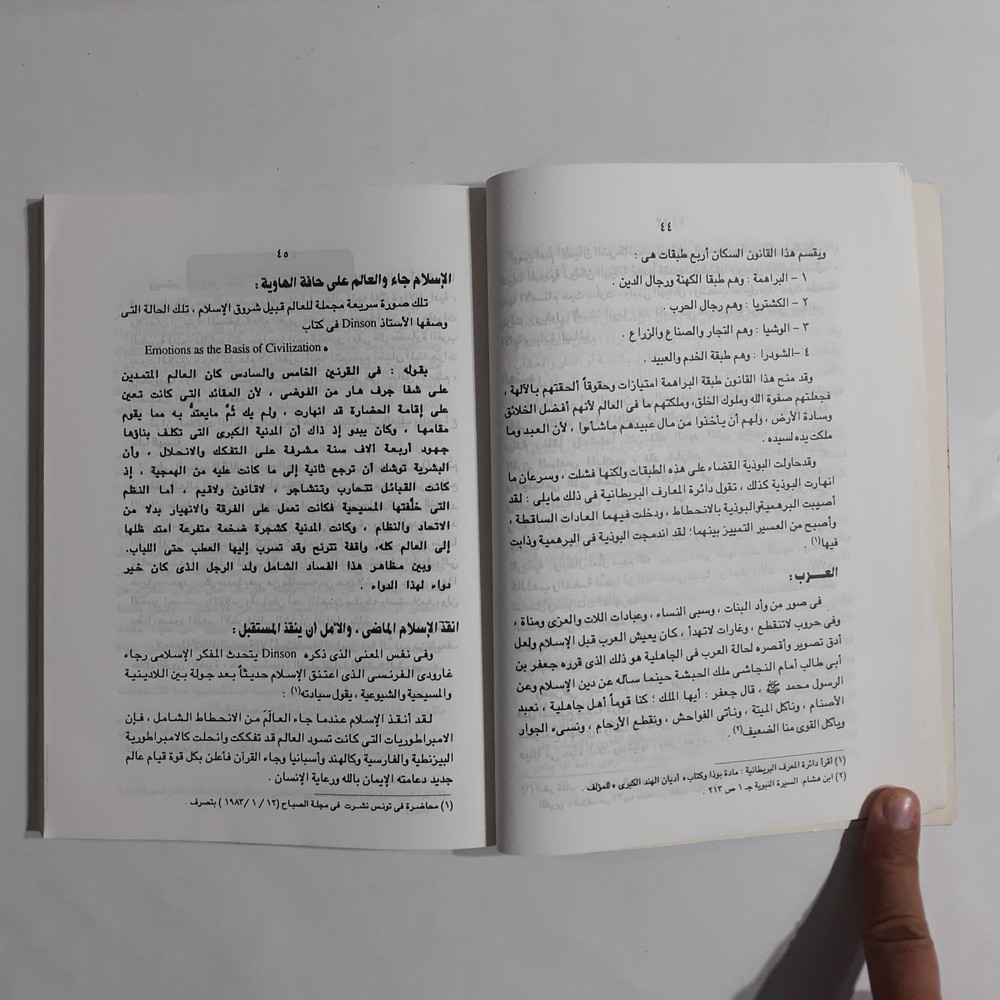 ٤٤
ويقسم هذا القانون السكان أربع طبقات هى :
١ – البراهمة : وهم طبقا الكهنة ورجال الدين .
٢ – الكشتريا : وهم رجال الحرب .
٣ – الوشيا : وهم التجار والصناع والزراع .
٤ –الشودرا : وهم طبقة الخدم والعبيد .
وقد منح هذا القانون طبقة البراهمة امتيازات وحقوقاً ألحقتهم بالآلهة ،
فجعلتهم صفوة الله وملوك الخلق، وملكتهم ما فى العالم لأنهم أفضل الخلائق
وسادة الأرض ، ولهم أن يأخذوا من مال عبيدهم ماشأوا ، لأن العبد وما
ملكت يده لسيده .
وقدحاولت البوذية القضاء على هذه الطبقات ولكنها فشلت ، وسرعان ما
انهارت البوذية كذلك ، تقول دائرة المعارف البريطانية فى ذلك مايلى : لقد
أصيبت البرهميةوالبوذية بالانحطاط ، ودخلت فيهما العادات الساقطة ،
وأصبح من العسير التمييز بينهما؛ لقد اندمجت البوذية فى البرهمية وذابت
فيها(١) .
العـــرب :
فى صور من وأد البنات ، وسبى النساء ، وعبادات اللات والعزى ومناة ،
وفى حروب لاتنقطع ، وغارات لاتهدأ ، كان يعيش العرب قبل الإسلام ولعل
أدق تصوير وأقصره لحالة العرب فى الجاهلية هو ذلك الذى قرره جعفر بن
أبى طالب أمام النجاشى ملك الحبشة حينما سأله عن دين الإسلام وعن
الرسول محمد ﷺ ، قال جعفر : أيها الملك ؛ كنا قوماً أهل جاهلية ، نعبد
الأصنام ، ونأكل الميتة ، ونأتى الفواحش ، ونقطع الأرحام ، ونسىء الجوار
ويأكل القوى منا الضعيف(٢) .
(١) أقرأ دائرة المعرف البريطانية : مادة بوذا وكتاب « أديان الهند الكبرى » للمؤلف .
(٢) ابن هشام: السيرة النبوية جـ ١ ص ٢١٣ .
٤٥
الإسلام جاء والعالم على حافة الهاوية :
تلك صورة سريعة مجملة للعالم قبيل شروق الإسلام ، تلك الحالة التى
وصفها الأستاذ Dinson فى كتاب
« Emotions as the Basis of Civilization
بقوله : فى القرنين الخامس والسادس كان العالم المتمدين
على شفا جرف هار من الفوضى ، لأن العقائد التى كانت تعين
على إقامة الحضارة قد انهارت ، ولم يك ثَمَّ مايعتدُّ به مما يقوم
مقامها ، وكان يبدو إذ ذاك أن المدنية الكبرى التى تكلف بناؤها
جهود أربعة آلاف سنة مشرفة على التفكك والانحلال ، وأن
البشرية توشك أن ترجع ثانية إلى ما كانت عليه من الهمجية ، إذ
كانت القبائل تتحارب وتتشاجر ، لاقانون ولاقيم ، أما النظم
التى خلَّفتها المسيحية فكانت تعمل على الفرقة والانهيار بدلا من
الاتحاد والنظام ، وكانت المدنية كشجرة ضخمة متفرعة امتد ظلها
إلى العالم كله، واقفة تترنح وقد تسرب إليها العطب حتى اللباب.
وبين مظاهر هذا الفساد الشامل ولد الرجل الذى كان خير
دواء لهذا الدواء .
انقذ الإسلام الماضى ، والأمل أن ينقذ المستقبل :
وفى نفس المعنى الذى ذكره Dinson يتحدث المفكر الإسلامى رجاء
غارودى الفرنسى الذى اعتنق الإسلام حديثاً بعد جولة بين اللادينية
والمسيحية والشيوعية ، يقول سيادته(١) :
لقد أنقذ الإسلام عندما جاء العالَمَ من الانحطاط الشامل ، فإن
الامبراطوريات التى كانت تسود العالم قد تفككت وانحلت كالامبراطورية
البيزنطية والفارسية وكالهند وأسبانيا وجاء القرآن فأعلن بكل قوة قيام عالم
جديد دعامته الإيمان بالله ورعاية الإنسان .
(١) محاضرة فى تونس نشرت فى مجلة الصباح (١٢ / ١ /١٩٨٣ ) بتصرف .